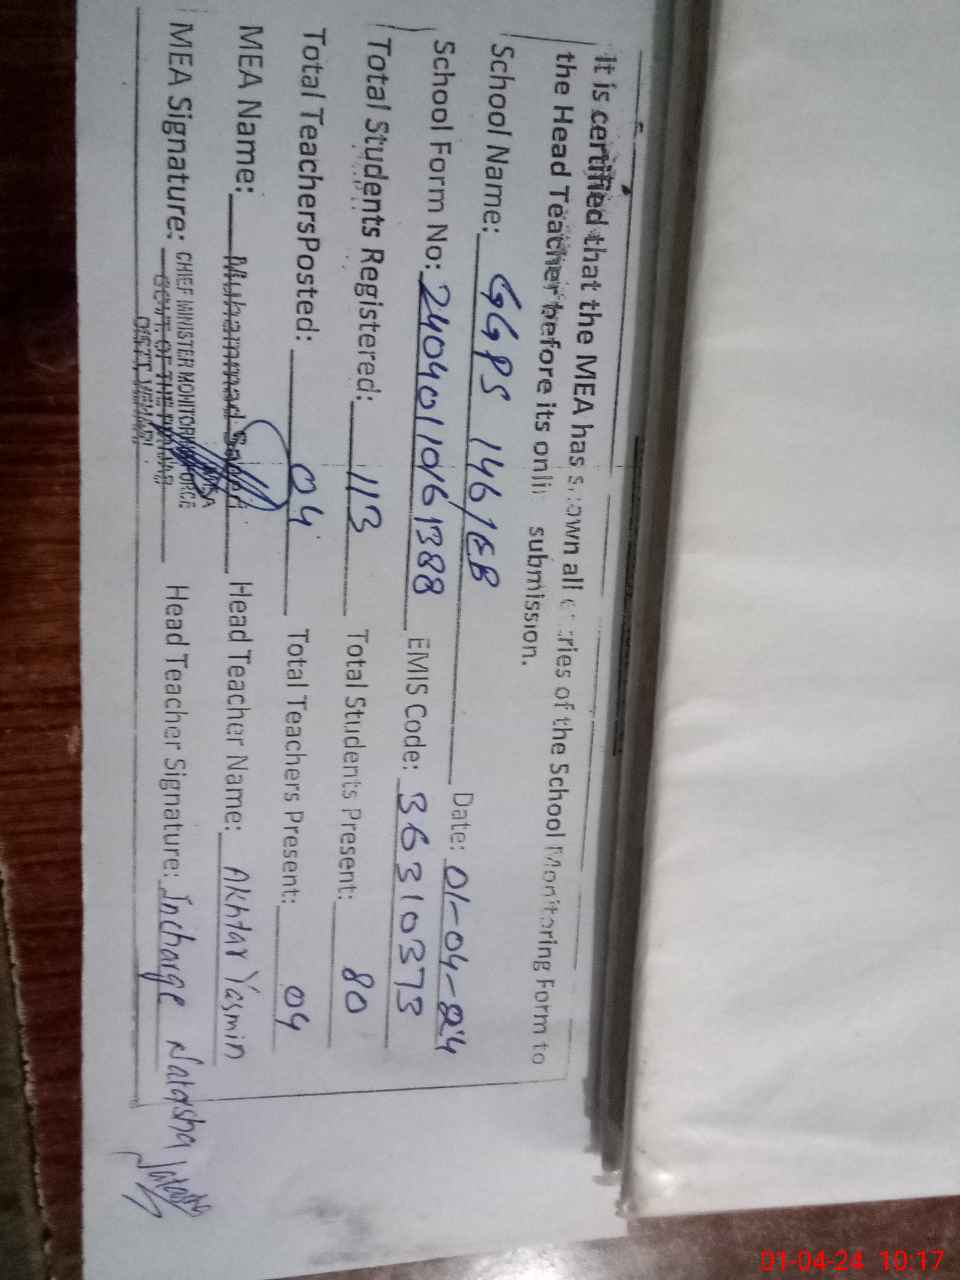 It is certified that the MEA has shown all entries of the School Monitoring Form to
the Head Teacher before its online submission.
School Name: GGPS 146/EB Date: 01-04-24
School Form No: 24040110161388 EMIS Code: 36310373
Total Students Registered: 113 Total Students Present: 80
Total TeachersPosted: 04 Total Teachers Present: 04
MEA Name: Muhammad Head Teacher Name: Akhtar Yasmin
MEA Signature: CHIEF MINISTER MONITORING FORCE Head Teacher Signature: Incharge Natasha
GOVT. OF THE PUNJAB
DISTT. VEHARI
01-04-24 10:17